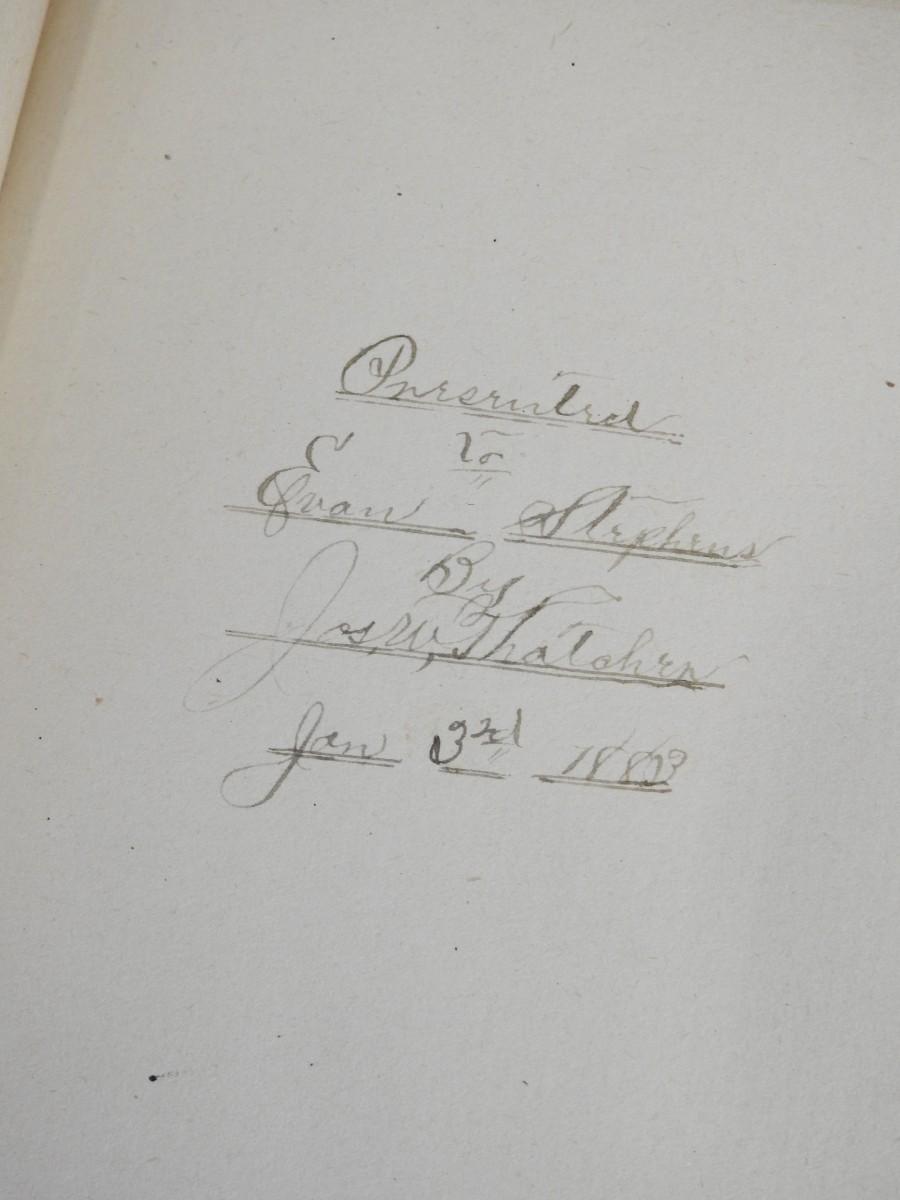 Presented
To
Evan Stephens
By
Jos, W, Thatcher
Jan 3rd 1883